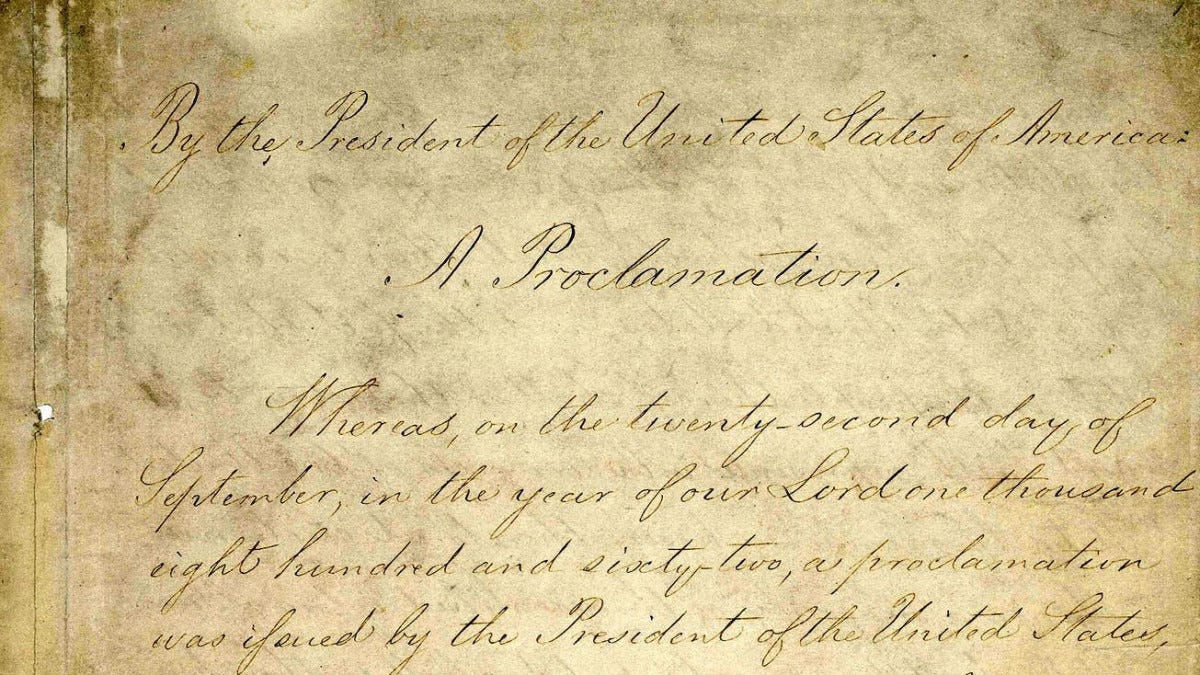 By the President of the United States of America:
A Proclamation.
Whereas, on the twenty-second day of
September, in the year of our Lord one thousand
eight hundred and sixty-two, a proclamation
was issued by the President of the United States,